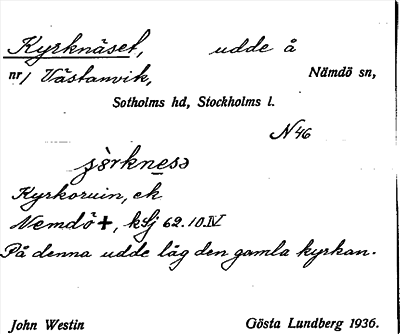 Kyrknäset, udde å
nr 1 Västanvik, Nämdö sn,
Sotholms hd, Stockholms l.
N 46
Kyrkoruin, ek
Nemdö +, kSj 62.10.IV
På denna udde låg den gamla kyrkan.
John Westin Gösta Lundberg 1936.